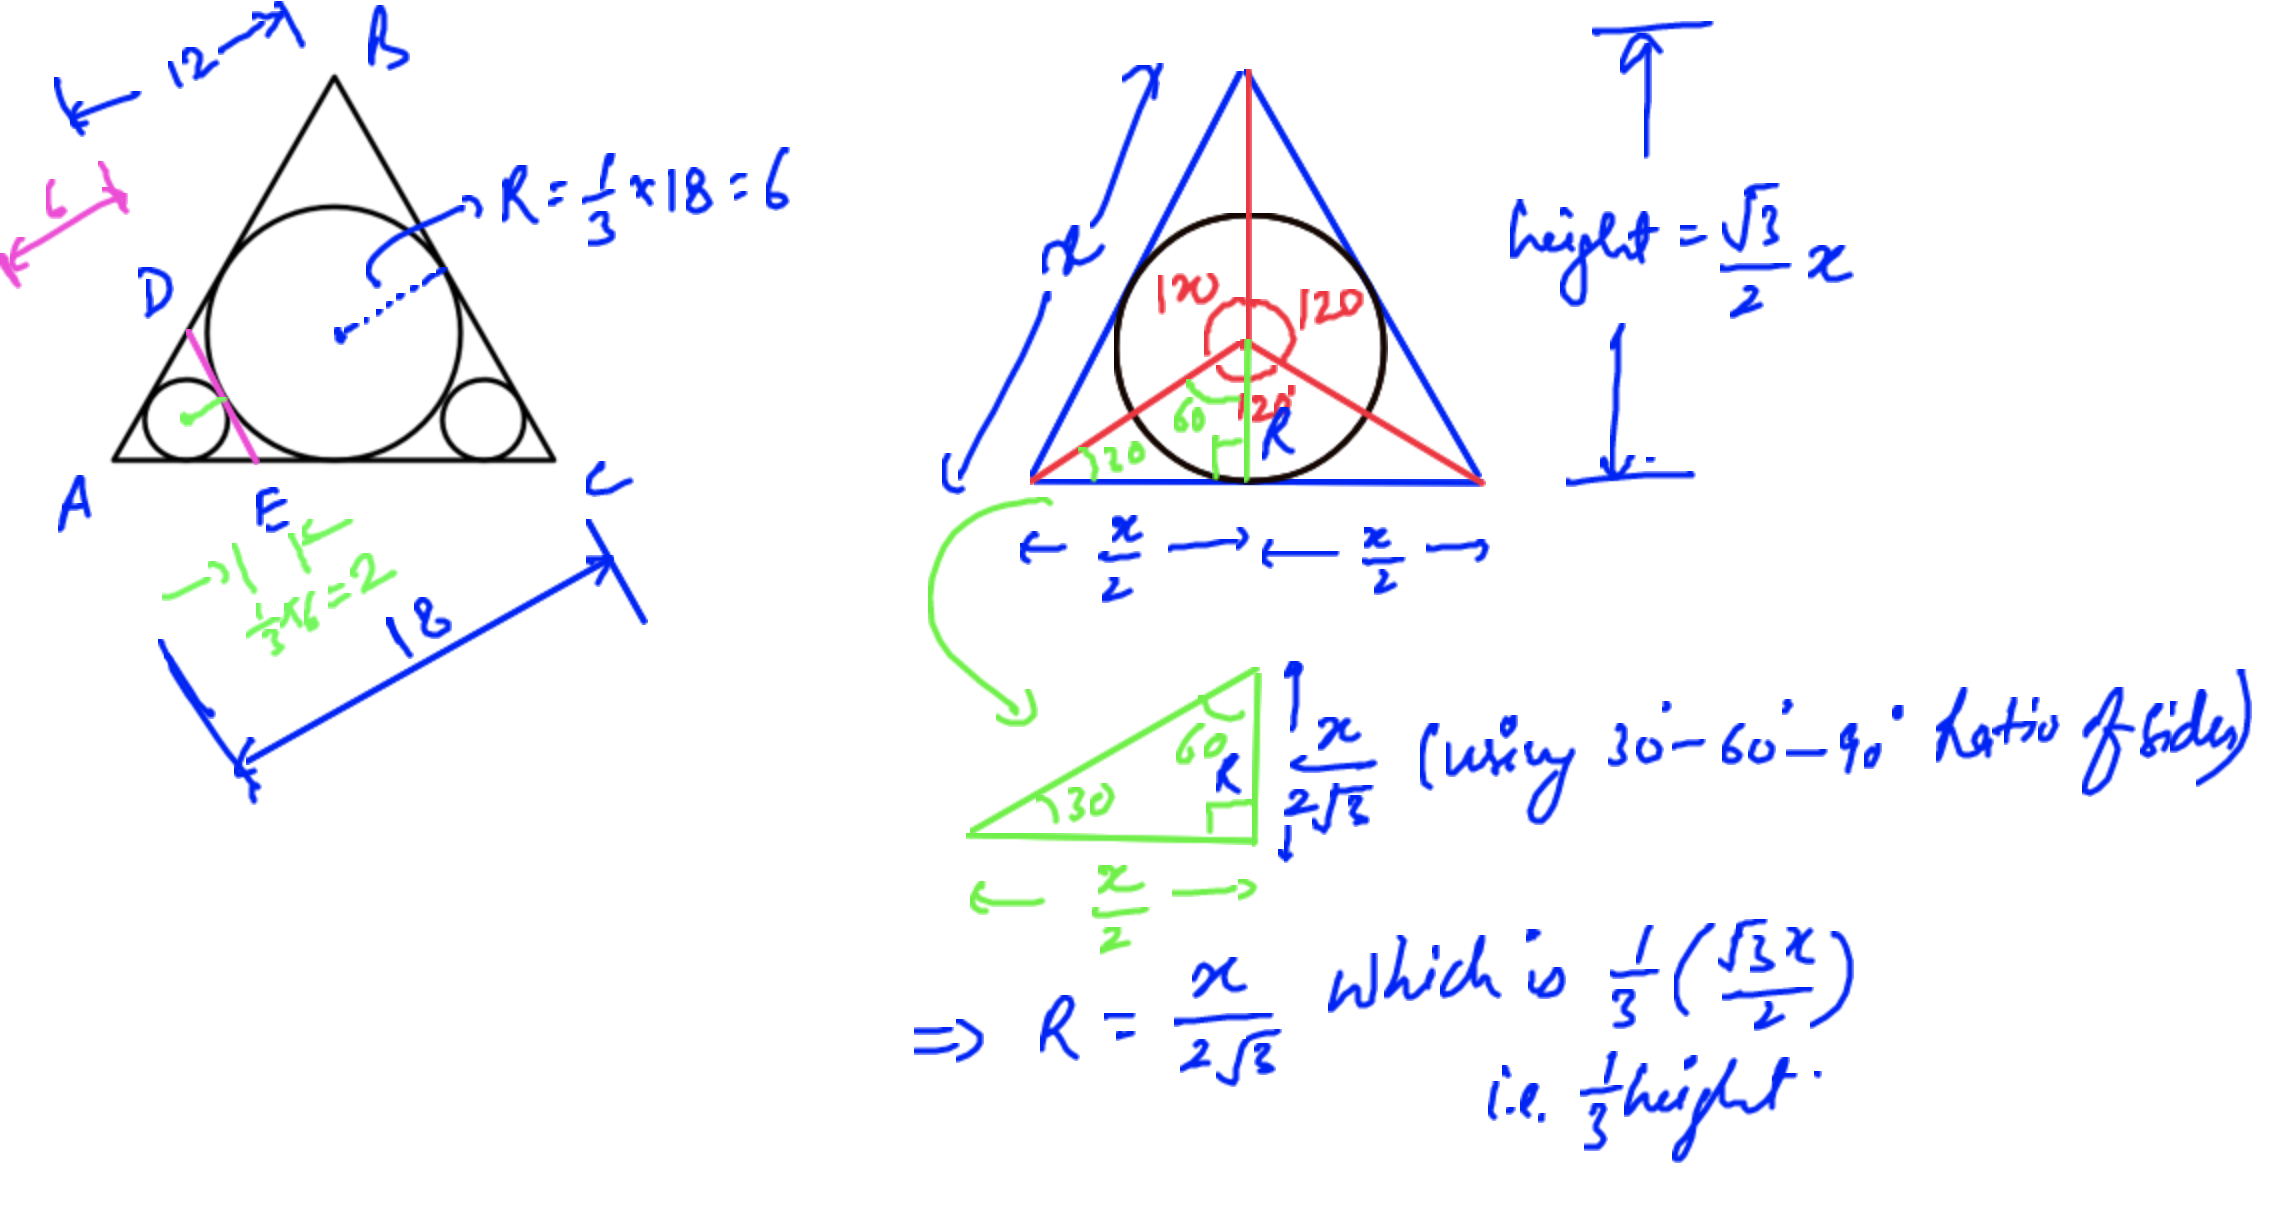 12
B
6
R = 1/3 × 18 = 6
D
A
E
C
1/3 × 6 = 2
18
x
120
120
120°
60
30
R
height = √3/2 x
x/2
x/2
60
30
R
x/2√3 (using 30° - 60° - 90° ratio of sides)
x/2
⇒ R = x/2√3 which is 1/3 (√3x/2)
i.e. 1/3 height.